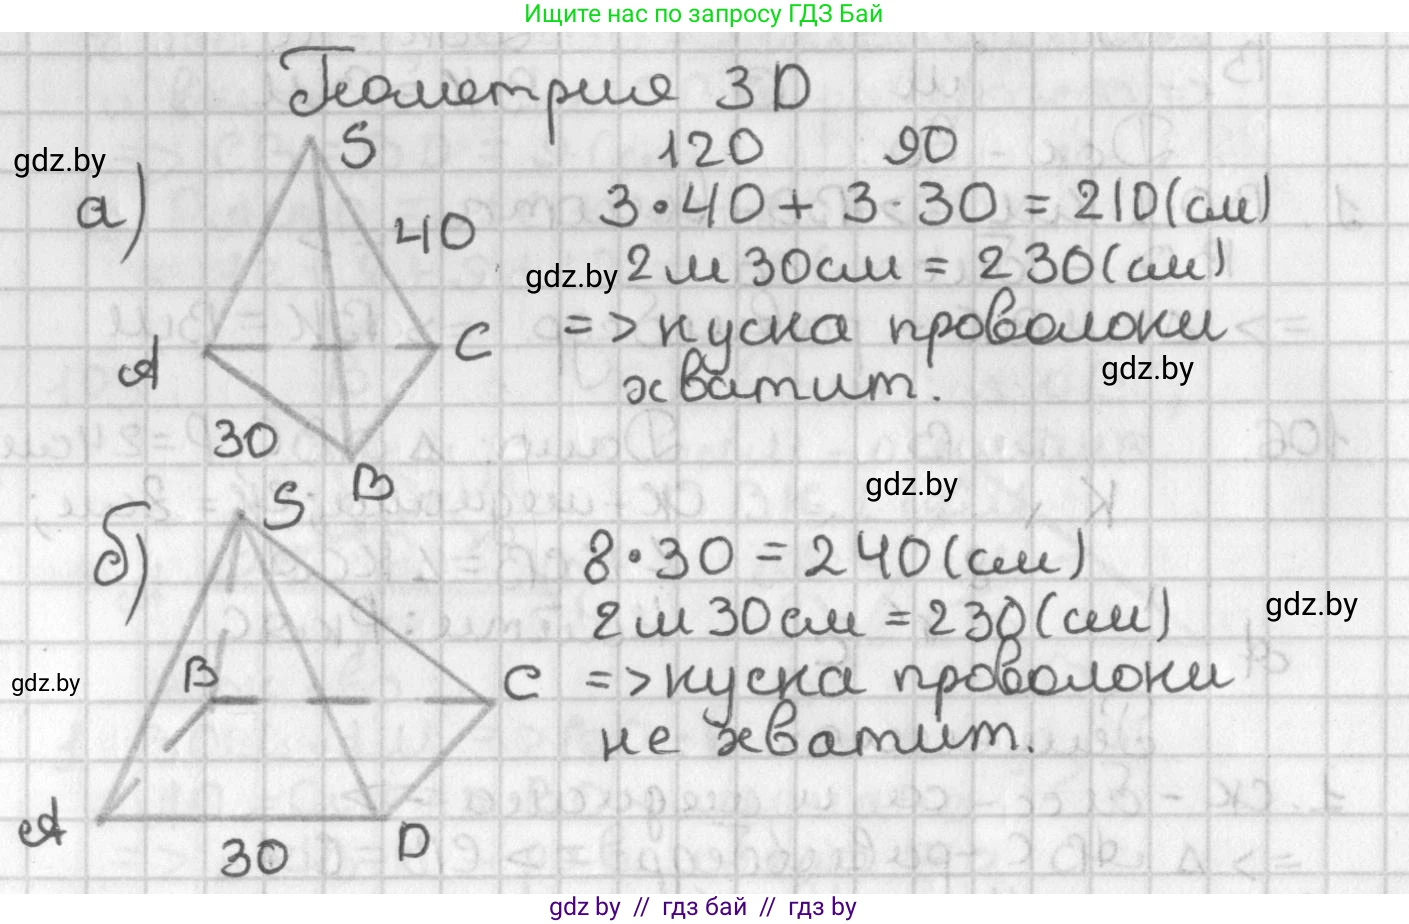 Ищите нас по запросу ГДЗ Бай
Геометрия 3D
gdz.by
а)
S
120 90
3·40 + 3·30 = 210(см)
40
gdz.by
2м 30см = 230(см)
=> куска проволоки
A
C
gdz.by
хватит.
30
B
gdz.by
б)
S
8·30 = 240(см)
gdz.by
2м 30см = 230(см)
B
C
gdz.by
=> куска проволоки
не хватит.
A
30
D
gdz.by // гдз бай // гдз by